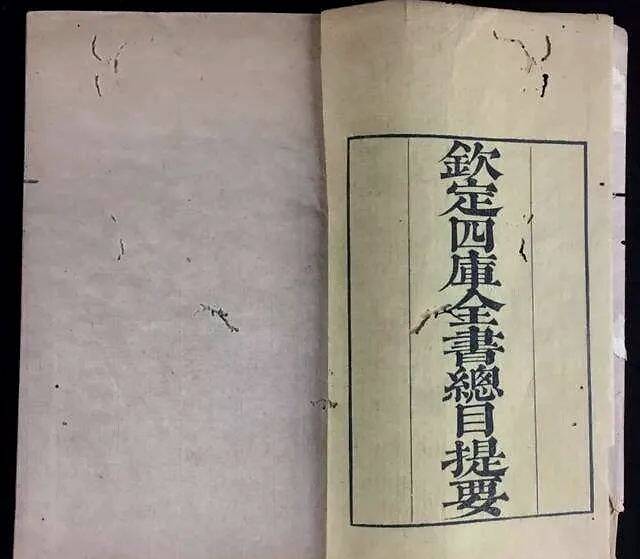 欽定四庫全書總目提要